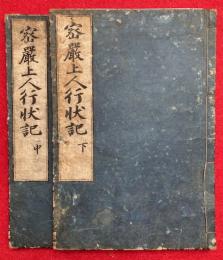 密嚴上人行狀記 下
密嚴上人行狀記 中